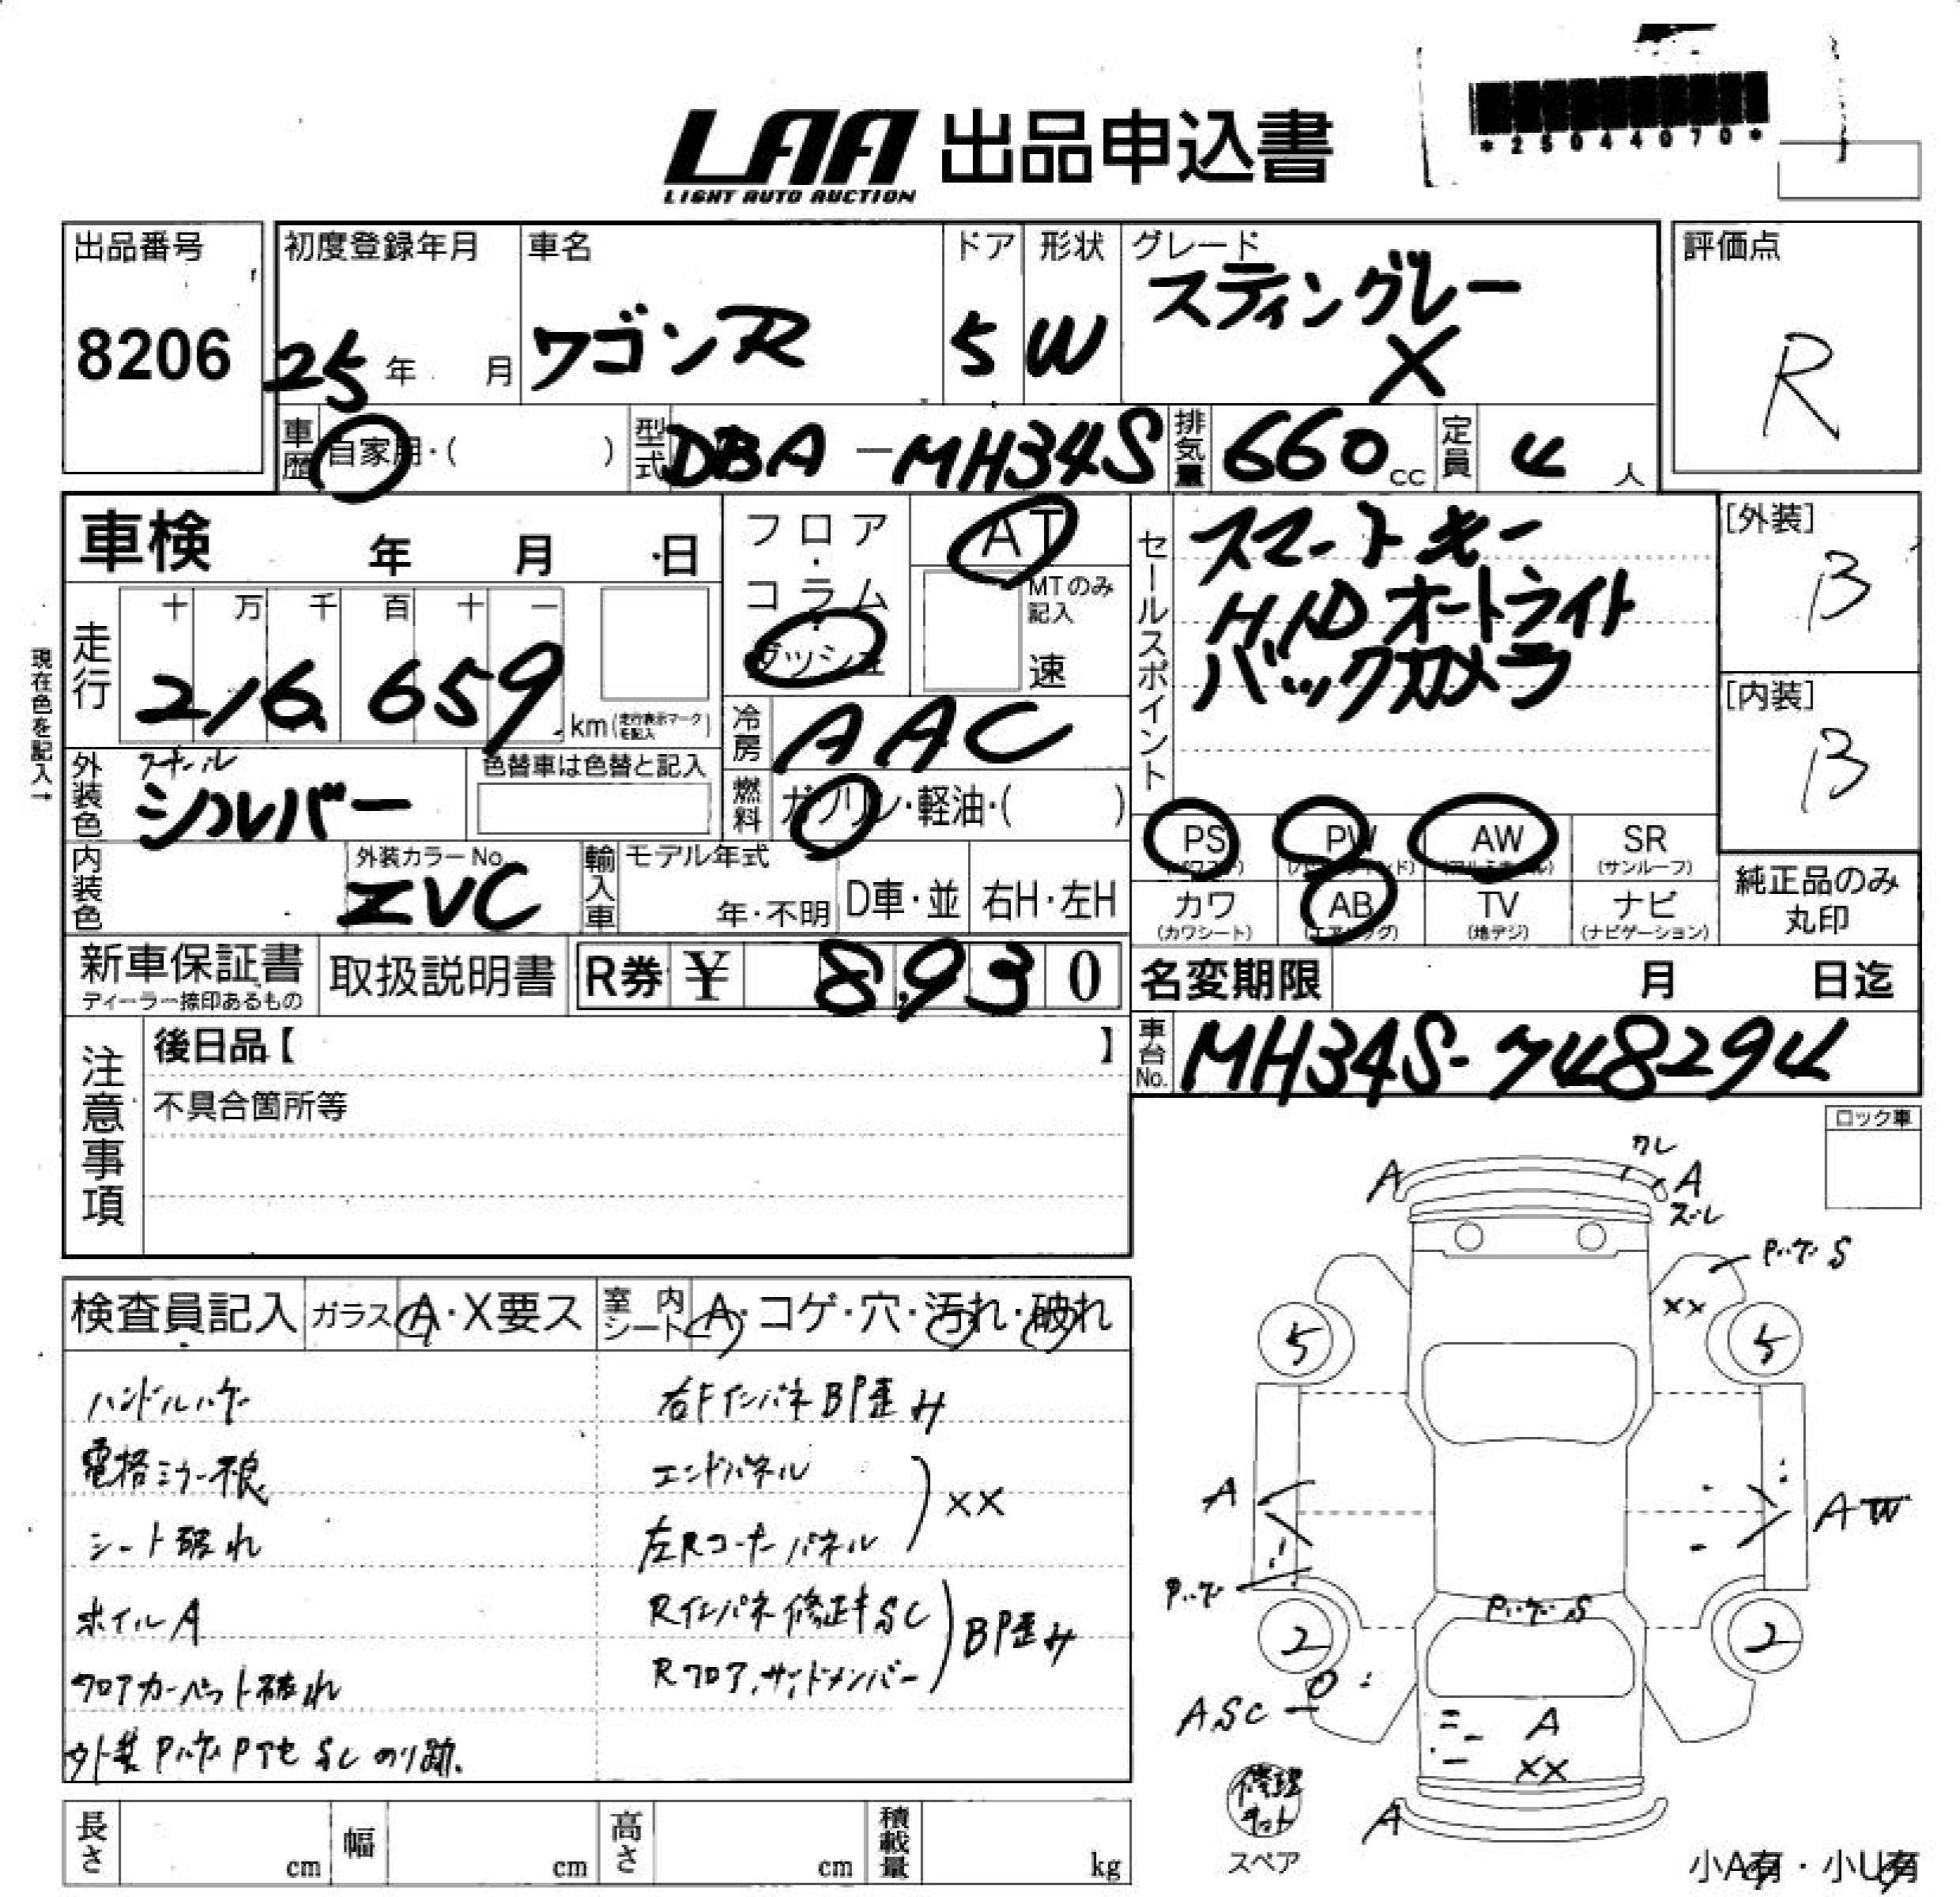 *25044070*
LAA 出品申込書
LIGHT AUTO AUCTION
出品番号
8206
初度登録年月
25年 月
車名
ワゴンR
ドア
5
形状
W
グレード
スティングレー
X
評価点
R
車歴 自家用・( )
型式 DBA-MH34S
排気量 660cc
定員 4人
車検 年 月 日
フロア・コラム・ダッシュ
AT
MTのみ記入
速
走行
十 万 千 百 十 一
216,659 km(走行表示マークを記入)
現在色を記入→
冷房 AAC
燃料 ガソリン・軽油・( )
外装色
シルバー
色替車は色替と記入
内装色
外装カラーNo.
ZVC
輸入車
モデル年式
年・不明
D車・並
右H・左H
セールスポイント
スマートキー
H.I.D オートライト
バックカメラ
[外装]
B
[内装]
B
PS(パワステ)
PW(パワーウィンド)
AW(アルミホイル)
SR(サンルーフ)
カワ(カワシート)
AB(エアバッグ)
TV(地デジ)
ナビ(ナビゲーション)
純正品のみ丸印
新車保証書
ディーラー捺印あるもの
取扱説明書
R券 ¥ 8,930
名変期限 月 日迄
車台No. MH34S-748294
注意事項
後日品【 】
不具合箇所等
ロック車
検査員記入
ガラス A・X要ス
室内シート A・コゲ・穴・汚れ・破れ
ハンドルハゲ
電格ミラー不良
シート破れ
ホイルA
フロアカーペット破れ
外装Pハゲ P下セ SC のり跡.
右FインパネBP歪み
エンドパネル
左Rコーナーパネル
XX
Rインパネ修正キSC
Rフロア,サイドメンバー
BP歪み
A
ワレ
A
ズレ
PハゲS
XX
5
5
A
AW
Pハゲ
PハゲS
2
2
ASC
A
XX
A
修理キット
スペア
小A有・小U有
長さ cm
幅 cm
高さ cm
積載量 kg